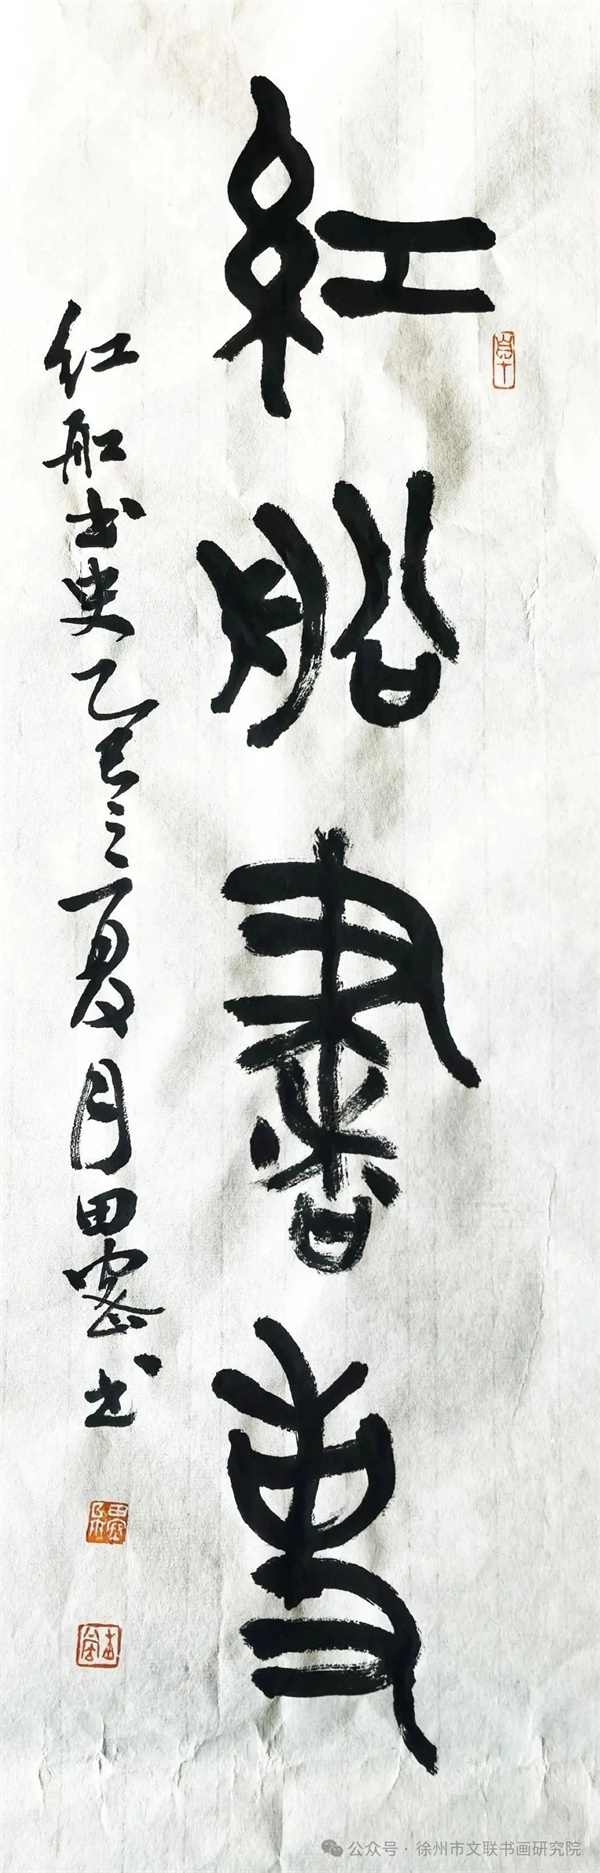 紅船書史
红船书史乙巳之夏月田密书
公众号·徐州市文联书画研究院